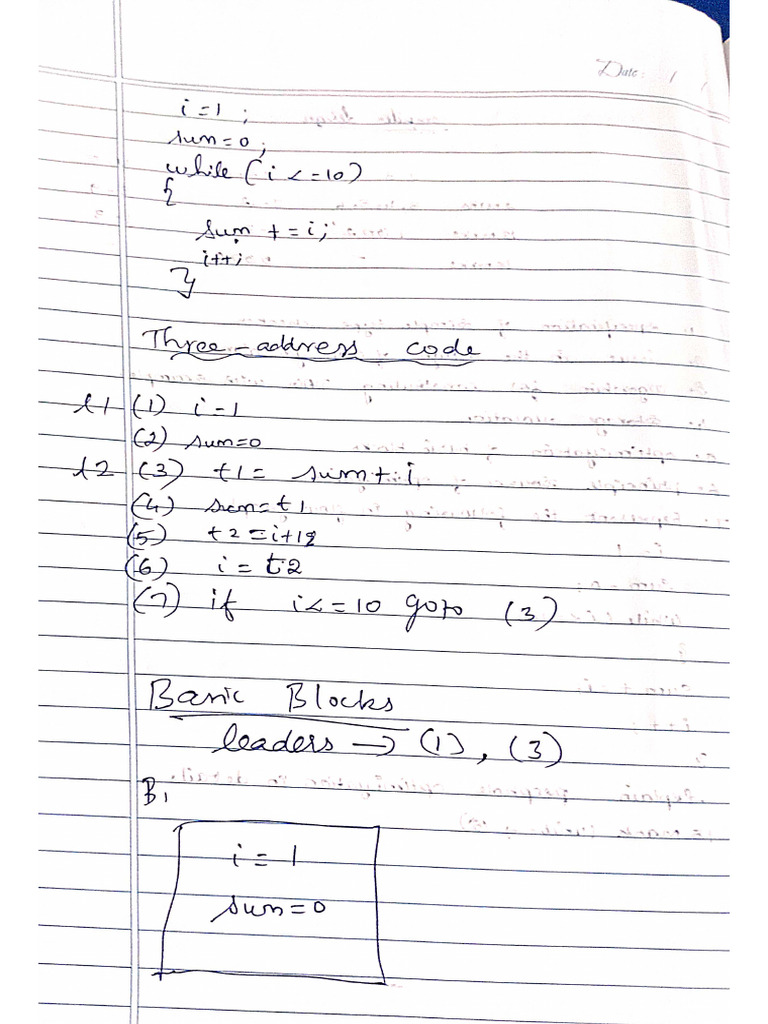 Date: / /
i=1 ;
sum=0;
while (i <=10)
{
sum +=i;
i++;
}
Three-address code
l1 (1) i-1
(2) sum=0
l2 (3) t1 = sum+i
(4) sum=t1
(5) t2=i+1
(6) i = t2
(7) if i<=10 goto (3)
Basic Blocks
leaders → (1), (3)
B1
i = 1
sum=0